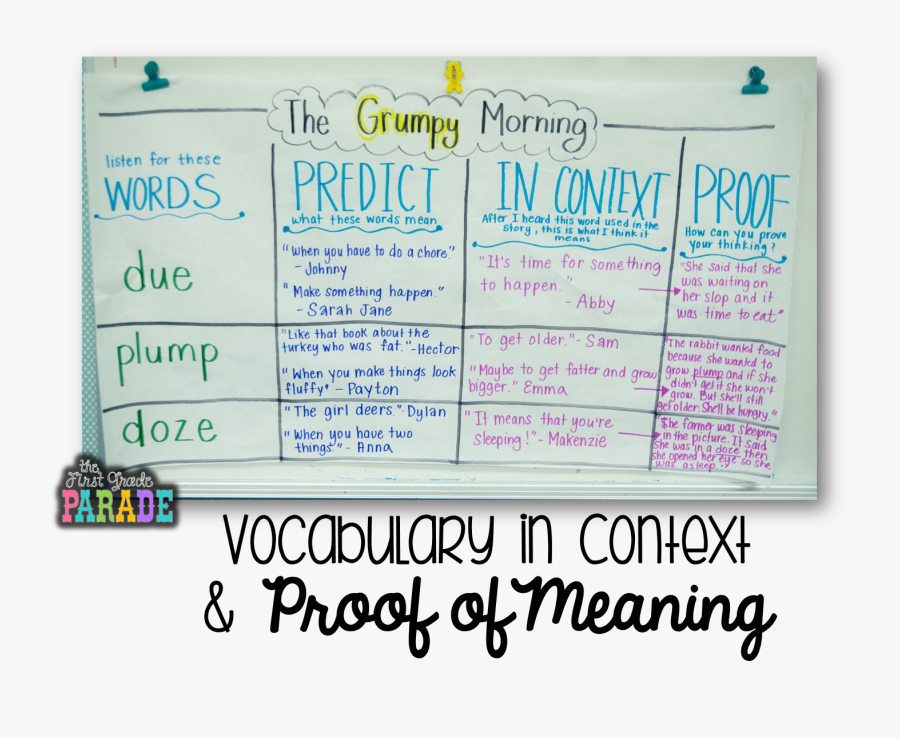 The Grumpy Morning
listen for these
WORDS
PREDICT
what these words mean
IN CONTEXT
After I heard this word used in the
story, this is what I think it
means
PROOF
How can you prove
your thinking?
due
"When you have to do a chore."
- Johnny
"Make something happen."
- Sarah Jane
"It's time for something
to happen."
- Abby
"She said that she
was waiting on
her slop and it
was time to eat"
plump
"Like that book about the
turkey who was fat."-Hector
"When you make things look
fluffy" - Payton
"To get older."- Sam
"Maybe to get fatter and grow
bigger." Emma
"The rabbit wanted food
because she wanted to
grow plump and if she
didn't get it she won't
grow. But she'll still
get older. She'll be hungry."
doze
"The girl deers." Dylan
"When you have two
things." - Anna
"It means that you're
sleeping!"- Makenzie
"She farmer was sleeping
in the picture. It said
she was in a doze then
she opened her eye so she
was asleep."
the
First Grade
PARADE
Vocabulary in Context
& Proof of Meaning